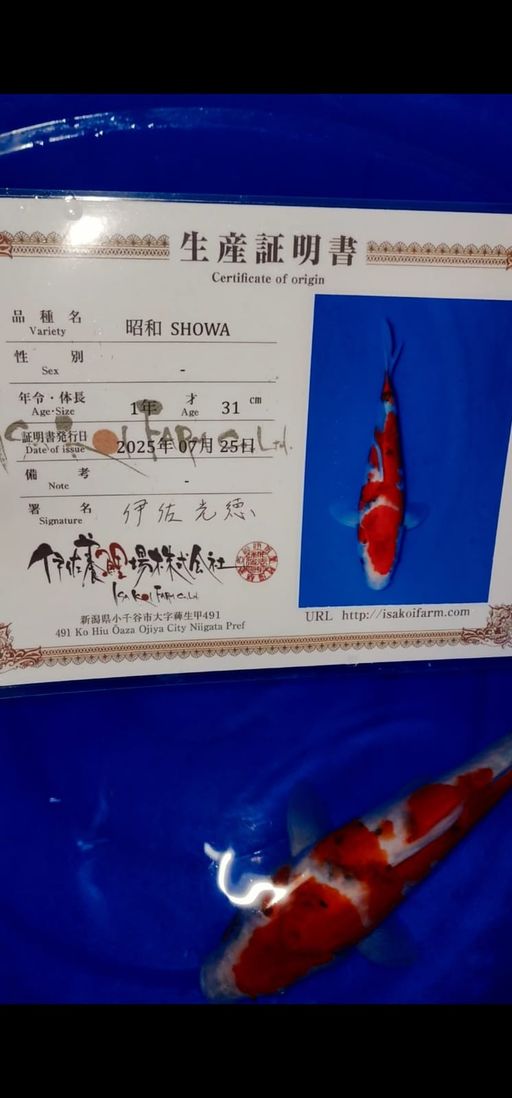 生産証明書
Certificate of origin
品種名
Variety
昭和 SHOWA
性別
Sex
-
年令・体長
Age・Size
1年
才
Age
31 cm
証明書発行日
Date of issue
2025年 07月 25日
備考
Note
-
署名
Signature
伊佐光徳
伊佐養鯉場株式会社
ISA KOI FARM Co.,Ltd.
新潟県小千谷市大字薭生甲491
491 Ko Hiu Ōaza Ojiya City Niigata Pref
URL http://isakoifarm.com